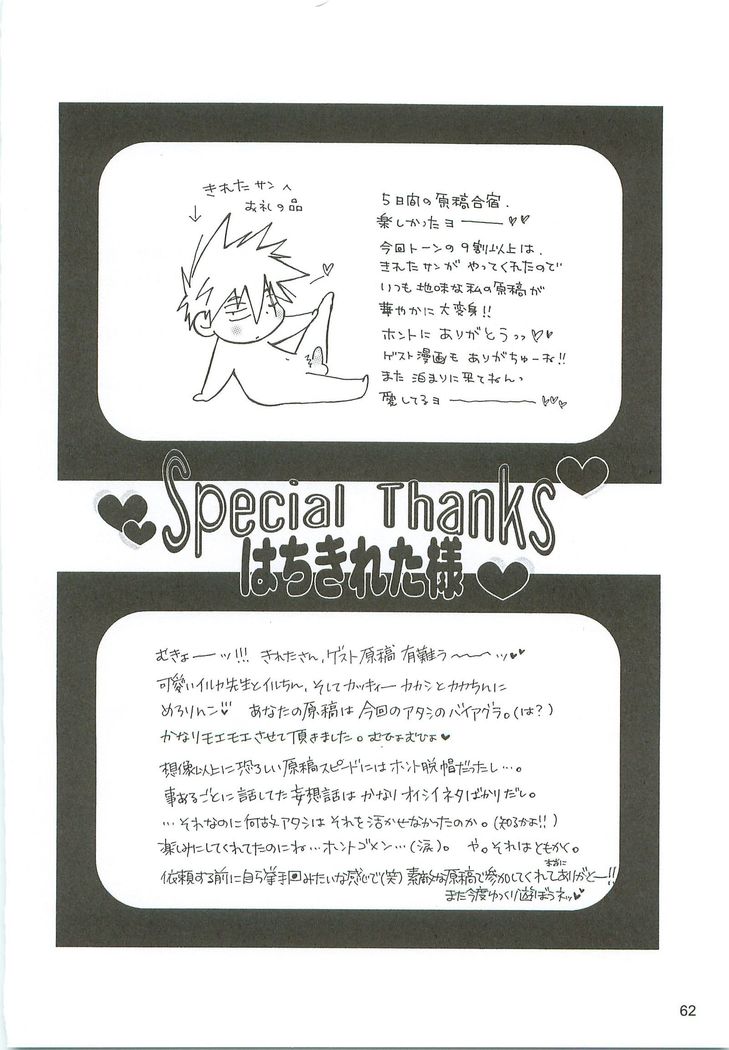 きれたサンへ
お礼の品
5日間の原稿合宿、
楽しかったヨー♡♡
今回トーンの9割以上は、
きれたサンがやってくれたので
いつも地味な私の原稿が
華やかに大変身!!
ホントにありがとうっっ♡♡
ゲスト漫画もありがちゅーね!!
また泊まりに来てねんっ
愛してるヨー♡♡♡
Special Thanks
はちきれた様
むきょーーッ!!! きれたさん、ゲスト原稿 有難う〜〜〜ッ♥♥
可愛いイルカ先生とイルちん、そしてカッキィーカカシとカカちんに
めろりんこ♡ あなたの原稿は今回のアタシのバイアグラ。(は?)
かなりモエモエさせて頂きました。むひょむひょ♥
想像以上に恐ろしい原稿スピードにはホント脱帽だったし…。
事あるごとに話してた妄想話はかなりオイシイネタばかりだし。
…それなのに何故アタシはそれを活かせなかったのか。(知るかよ!!)
楽しみにしてくれてたのにね…ホントゴメン…(涙)。 や。それはともかく。
依頼する前に自ら挙手回みたいな感じで(笑)素敵な原稿で参加してくれてまぢにありがとー!!
また今度ゆっくり遊ぼうネッ♥
62